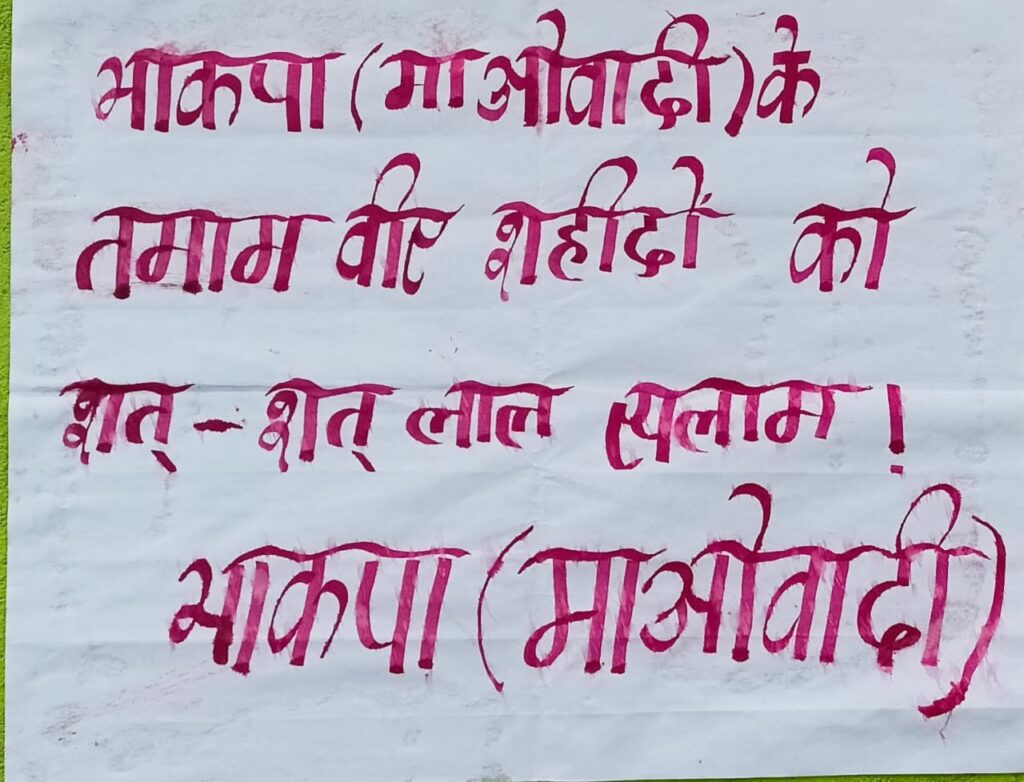 भाकपा (माओवादी) के
तमाम वीर शहीदों को
शत् - शत् लाल सलाम !
भाकपा (माओवादी)